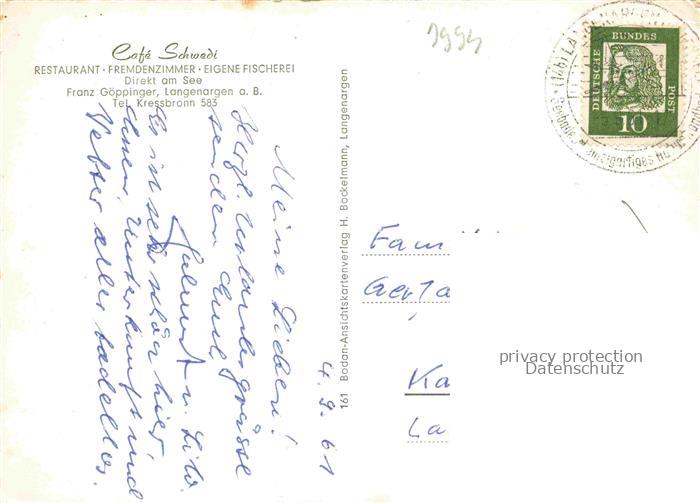 Café Schwedi
RESTAURANT · FREMDENZIMMER · EIGENE FISCHEREI
Direkt am See
Franz Göppinger, Langenargen a. B.
Tel. Kressbronn 583
1994
DEUTSCHE BUNDES POST
10
161 Bodan-Ansichtskartenverlag H. Bockelmann, Langenargen
4.9.61
Meine Lieben!
Herzl. Urlaubsgrüsse
senden Euch
Helmut u. Lilo
Es ist sehr schön hier
Essen, Unterkunft und
Wetter alles tadellos.
Fam
Gerta
Ka
La
privacy protection
Datenschutz